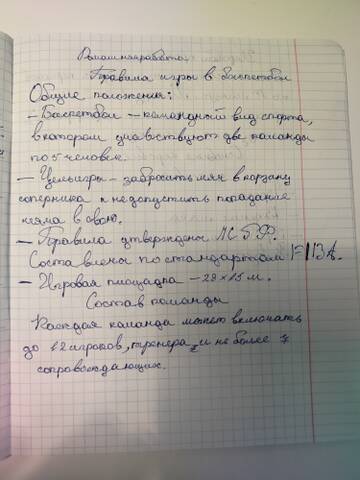 Домашняя работа.
Правила игры в баскетбол
Общие положения:
– Баскетбол – командный вид спорта,
в котором учавствуют две команды
по 5 человек.
– Цель игры – забросить мяч в корзину
соперника и не допустить попадание
мяча в свою.
– Правила утверждены
Составлены по стандартам
– Игровая площадка – 28×15 м.
Состав команды
Каждая команда может включать
до 12 игроков, тренера, и не более 7
сопровождающих.